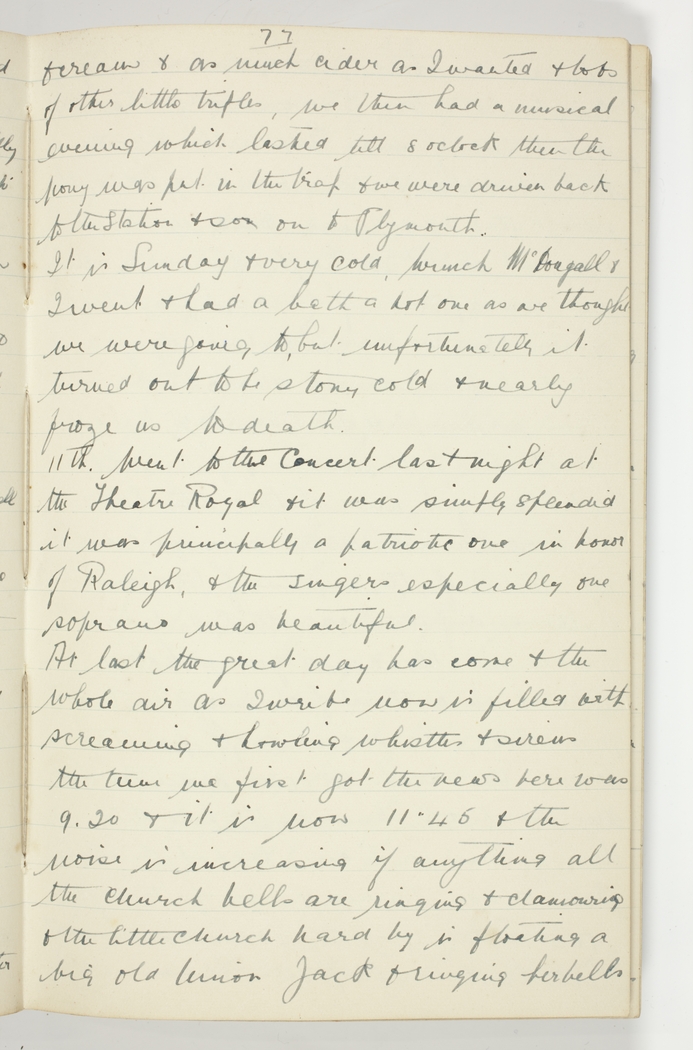 77
& cream & as much cider as I wanted & lots
of other little trifles, we then had a musical
evening which lasted till 8 oclock then the
pony was put in the trap & we were driven back
to the Station & so on to Plymouth.
It is Sunday & very cold, McDougall &
I went & had a bath a hot one as we thought
we were going to, but unfortunately it
turned out to be stony cold & nearly
froze us to death.
11th. Went to the Concert last night at
the Theatre Royal & it was simply splendid
it was principally a patriotic one in honor
of Raleigh, & the singers especially one
soprano was beautiful.
At last the great day has come & the
whole air as I write now is filled with
screaming & howling whistles & sirens
the time we first got the news here was
9.20 & it is now 11.45 & the
noise is increasing if anything all
the church bells are ringing & clamouring
& the little church hard by is floating a
big old Union Jack & ringing her bells